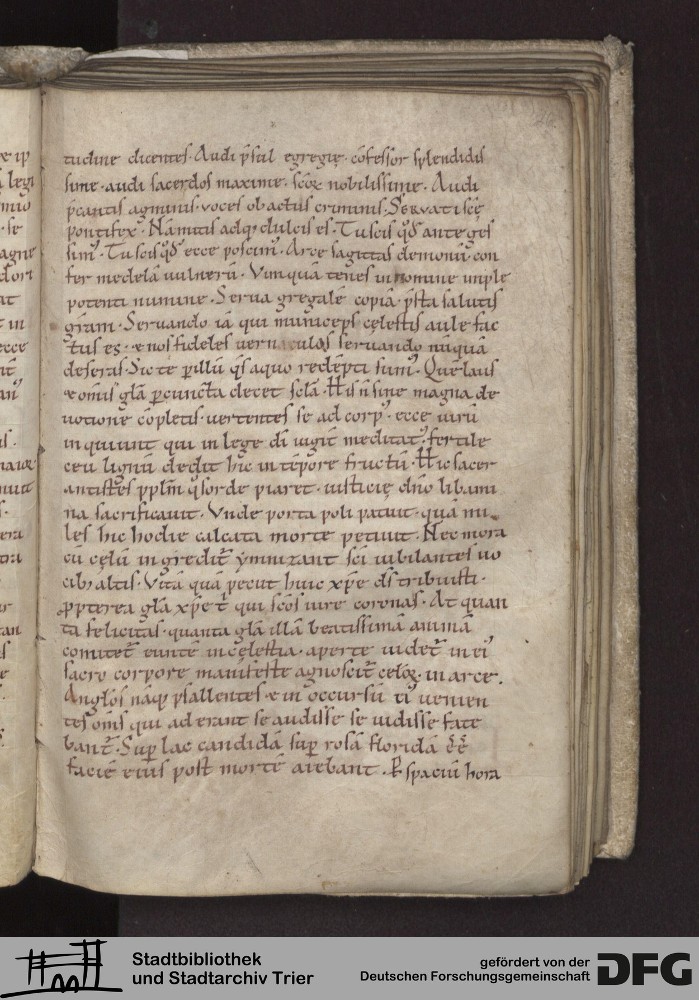 tudine dicentes. Audi p̄sul egregię. cōfessor splendidis
sime. audi sacerdos maxime. nobilissime. Audi
p̄cantis agminis. voces ob actus criminis. Servati scē
pontifex. Nā mitis adq; dulcis es. Tu scis qđ ante ges
sim᾽. Tu scis qđ ecce poscim᾽. Arce sagittas demonū. con
fer medelā uulnerū. Vim quā tenes in nomine
potenti numine. Serua gregalē copiā. p̄sta salutis
grām. Seruando iā qui municeps cęlestis aule fac
tus es. & nos fideles vernaculos seruando nūquā
deseras. Sic te p illū q̄s a quo redēpti sum᾽. Quē laus
& om̄is glā p cuncta decet sclā. His n̄ sine magna de
uotione cōpletis. uertentes se ad corp᾽. ecce uirū
inquiunt qui in lege dī uigit meditat᾽. fertile
ceu lignū dedit hic in tēpore fructū. Hic sacer
antistes pplm̄ q̄ sorde piaret. iusticię dn̄o libami
na sacrificauit. Vnde porta poli patuit. quā mi
les hic hodie calcata morte petiuit. Nec mora
cū cęlū ingredit᾽ ymnizant sc̄i iubilantes uo
cib; altis. Vitā quā peciit huic xp̄e ds̄ tribuisti.
ꝓpterea glā xp̄e t̄ qui sc̄os iure coronas. At quan
ta felicitas. quanta glā illā beatissimā animā
comitet᾽ euntē in cęlestia. aperte uidet᾽ in ei᾽
sacro corpore manifeste agnoscit᾽ celoꝝ in arce.
Anglos nāq; psallentes & in occursū ei᾽ uenien
tes om̄s qui aderant se audisse se uidisse fate
bant᾽. Sup lac candidā sup rosā floridā ēē
faciē eius post mortē aiebant. P spaciū hora
Stadtbibliothek
und Stadtarchiv Trier
gefördert von der
Deutschen Forschungsgemeinschaft
DFG